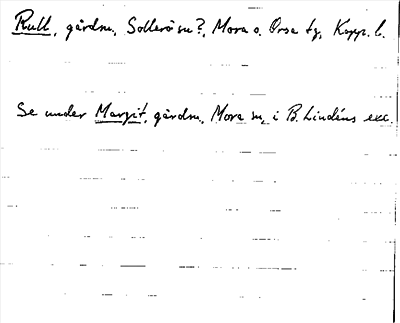 Rull, gårdn, Sollerö sn?, Mora o. Orsa tg, Kopp. l.
Se under Margit, gårdn, Mora sn, i B. Lindéns exc.